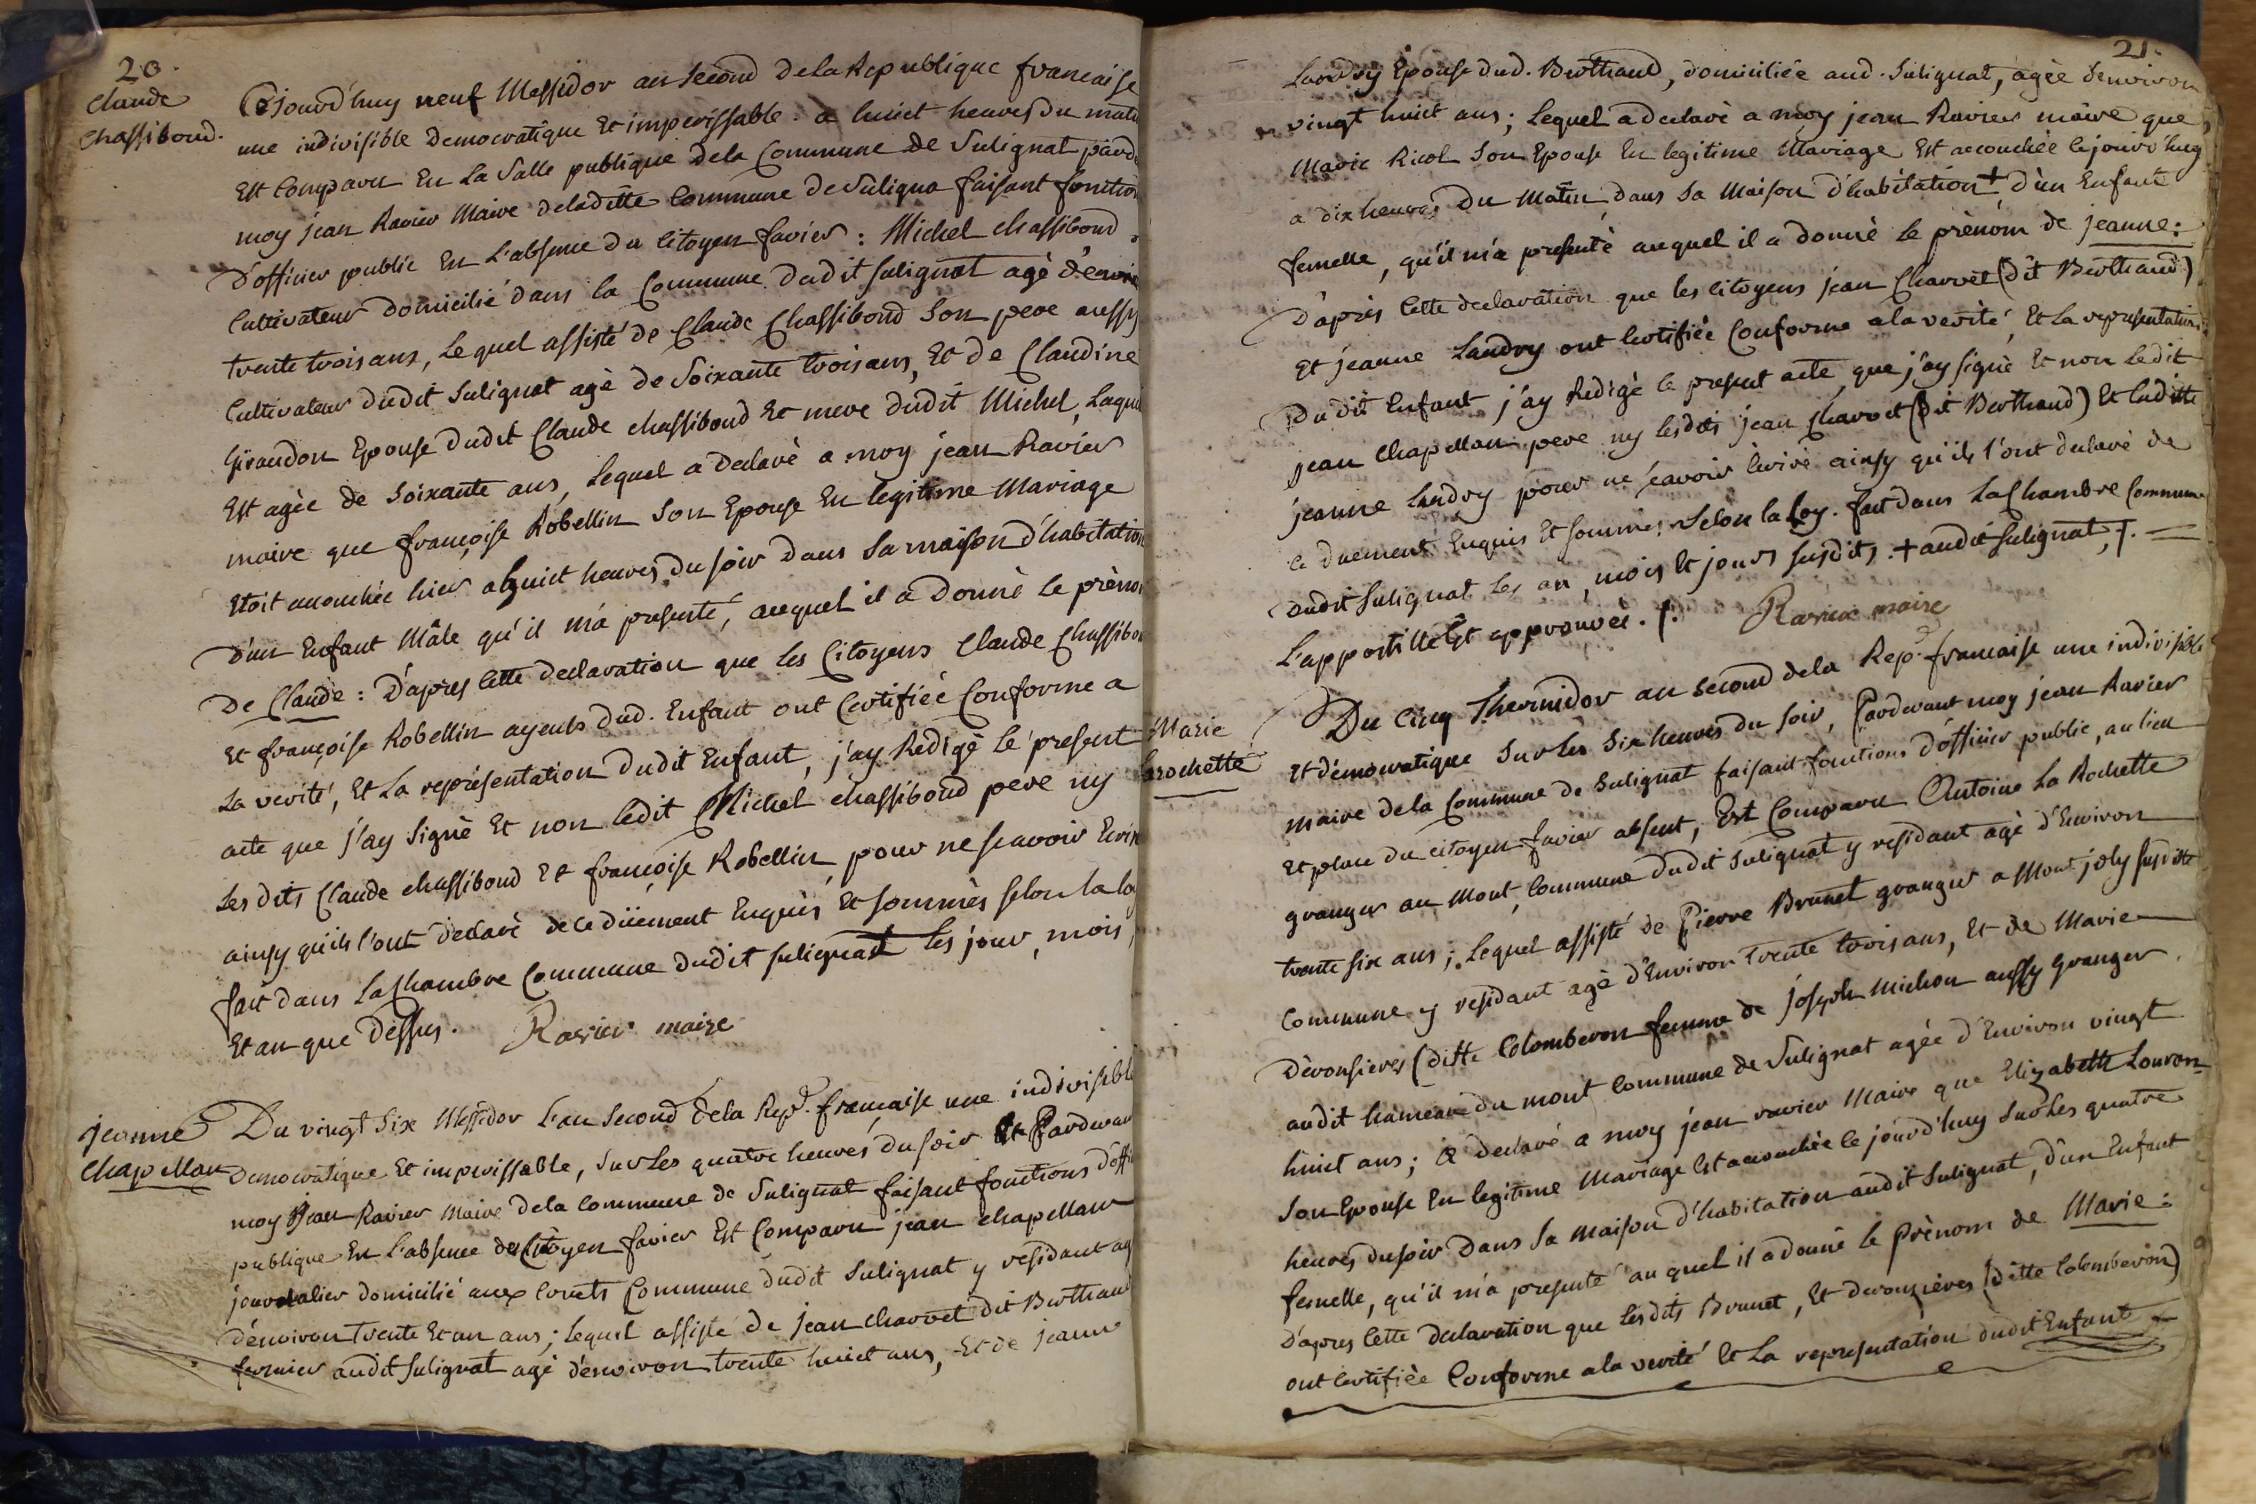 20.
Claude
Chassiboud.
Cejourd'huy neuf Messidor an second de la Republique francaise
une indivisible democratique Et imperissable. a huict heures du mati
Est Comparu En La Salle publique dela Commune de Sulignat pard
moy jean Ravier Maire deladitte Commune de Suligna faisant fonction
D'officier public En L'absence du Citoyen favier : Michel chassiboud
Cultivateur domicilié dans la Commune dudit sulignat agè d'enviro
trente trois ans, Lequel assisté de Claude Chassiboud son pere aussy
Cultivateur dudit sulignat agè de Soixante trois ans, Et de Claudine
Giraudon Epouse dudit Claude chassiboud Et mere dudit Michel, Laqu
Est agèe de soixante ans, Lequel a declarè a moy jean Ravier
maire que françoise Robellin son Epouse En legitime Mariage
Etoit accouchée hier a huict heures du soir dans Sa maison d'habitation
D'un Enfant Mâle qu'il m'a presenté, auquel il a Donnè Le prèno
De Claude : D'apres Cette declaration que les Citoyens Claude Chassibou
Et françoise Robellin ayeuls dud. Enfant ont Certifièe Conforme a
La verité, Et La représentation dudit Enfant, j'ay Redigè le present
acte que j'ay signè Et non ledit Michel chassiboud pere ny
Les dits Claude chassiboud Et françoise Robellin pour ne scavoir Ecrire
ainsy qu'ils l'ont declarè de ce düement Enquis Et sommès selon la lo
fait dans La Chambre Commune dudit sulignat les jour, mois,
Et an que dessus. Ravier maire
jeanne
Chapellan
Du vingt six Messidor L'an second dela Rep. française une indivisible
Democratique Et imperissable, sur Les quatre heures du soir Pardevan
moy Jean Ravier Maire dela Commune de Sulignat faisant fonctions d'offi
publique En L'absence du Citoyen favier Est Comparu jean chapellan
journalier domicilié aux Commune dudit Sulignat y residant ag
d'environ trente Et un ans ; Lequel assisté de jean charvet dit Berthaud
fermier audit sulignat agè d'environ trente huict ans, Et de jeanne
21.
Landry Epouse dud. Berthaud, domiciliée aud. Sulignat, agèe d'environ
vingt huict ans ; Lequel a declarè a moy jean Ravier maire que
Marie Ricol son Epouse En legitime Mariage Est accouchèe cejourd'huy
a dix heures du Matin dans Sa Maison d'habitation + d'un Enfant
femelle, qu'il m'a presentè auquel il a donnè Le prènom de jeanne :
D'après Cette declaration que les Citoyens jean Charvet (dit Berthaud)
Et jeanne Landry ont Certifiée Conforme a la verité, Et La representation
du dit Enfant j'ay Redigè le present acte que j'ay signè Et non Ledit
jean Chapellan pere ny lesdits jean Charvet (dit Berthaud) Et Laditte
jeanne Landry pour ne scavoir Ecrire ainsy qu'ils l'ont declarè de
ce duement Enquis Et sommès selon la Loy. fait dans La Chambre Commune
dudit sulignat les an, mois Et jours susdits. + audit sulignat, /. =
L'appostille Est approuvèe. /. Ravier maire
Marie
Larochette
Du Cinq Thermidor an second dela Rep. francaise une indivisible
Et démocratique sur Les Six heures du Soir, Pardevant moy jean Ravier
maire dela Commune de Sulignat faisant fonctions d'officier public, au lieu
Et place du citoyen favier absent, Est Comparu Antoine La Rochette
granger au Mont, Commune dudit Sulignat y residant agè d'Environ
trente six ans ; Lequel assisté de Pierre Brunet granger a Mont joly susditte
Commune y residant agè d'Environ trente trois ans, Et de Marie
Devonsieres (ditte Colomberon femme de joseph Michon aussy granger
audit hameau du mont Commune de Sulignat agèe d'Environ vingt
huict ans ; a declaré a moy jean ravier Maire que Elizabeth Louvon
Son Epouse En legitime Mariage Est accouchée Ce jourd'huy sur Les quatre
heures du soir Dans Sa maison d'habitation audit Sulignat, d'un Enfant
femelle, qu'il m'a presenté auquel il a donnè le Prènom de Marie :
D'apres Cette declaration que Lesdits Brunet, Et devonzières (ditte Colomberon)
ont Certifièe Conforme a la verité Et La representation dudit Enfant